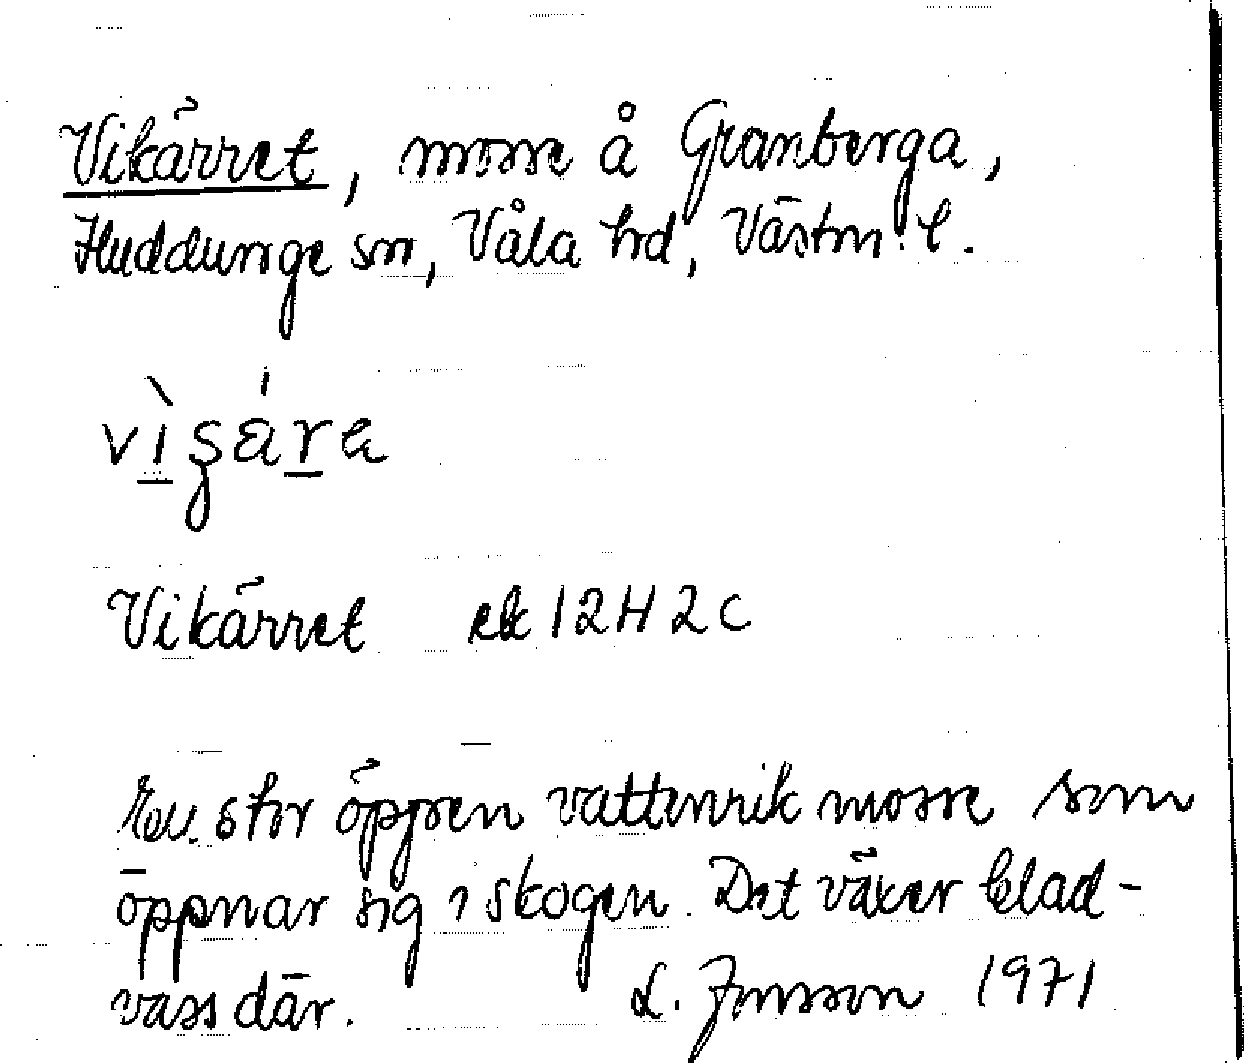 Vikärret, mosse å Granberga,
Huddunge sn, Våla hd, Västm. l.
Vikärret ek 12H 2c
En stor öppen vattenrik mosse som
öppnar sig i skogen. Det växer blad-
vass där. L. Jonsson 1971